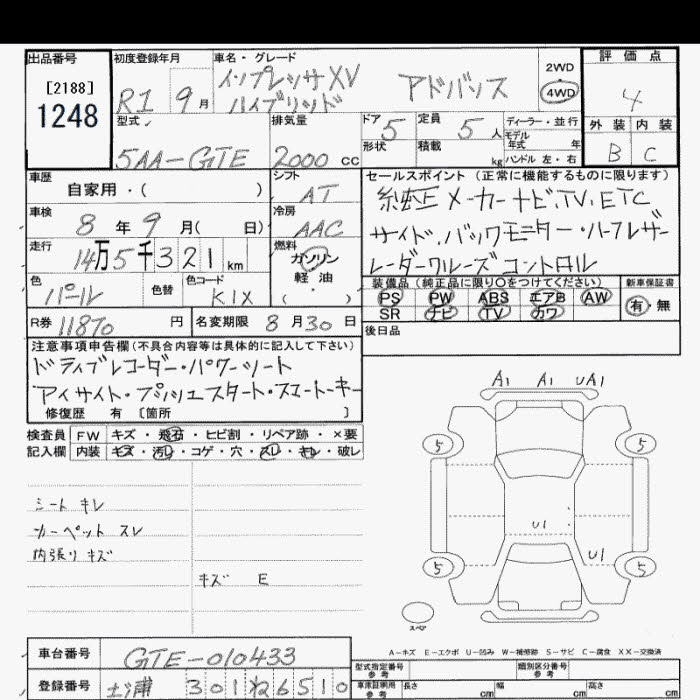 出品番号
[2188]
1248
初度登録年月
R1 9月
車名・グレード
インプレッサXV
ハイブリッド
アドバンス
2WD
4WD
評価点
4
外装 内装
B C
型式
5AA-GTE
排気量
2000 cc
ドア 5
形状
定員 5人
積載 kg
ディーラー・並行
モデル年式 年
ハンドル 左・右
車歴
自家用・( )
シフト
AT
車検
8年 9月( 日)
冷房
AAC
走行
14万5千321km
燃料
ガソリン
軽油
( ・ )
色
パール
色替
色コード
K1X
R券 11870円
名変期限 8月30日
セールスポイント(正常に機能するものに限ります)
純正メーカーナビ.TV.ETC
サイド.バックモニター・ハーフレザー
レーダークルーズコントロル
装備品(純正品に限り○をつけてください)
PS PW ABS エアB AW
SR ナビ TV カワ
新車保証書
有・無
後日品
注意事項申告欄(不具合内容等は具体的に記入して下さい)
ドライブレコーダー・パワーシート
アイサイト・プッシュスタート・スマートーキー
修復歴 有 〔箇所 〕
検査員
記入欄
FW キズ・飛石・ヒビ割・リペア跡・×要
内装 キズ・汚れ・コゲ・穴・スレ・キレ・破レ
シート キレ
カーペット スレ
内張り キズ
キズ E
A1 A1 UA1
5 5
U1
U1
5 5
スペア
A-キズ E-エクボ U-凹み W-補修跡 S-サビ C-腐食 XX-交換済
車台番号
GTE-010433
登録番号
土浦 301 26510
型式指定番号
参考
類別区分番号
参考
車庫証明用
参考
長さ cm
幅 cm
高さ cm